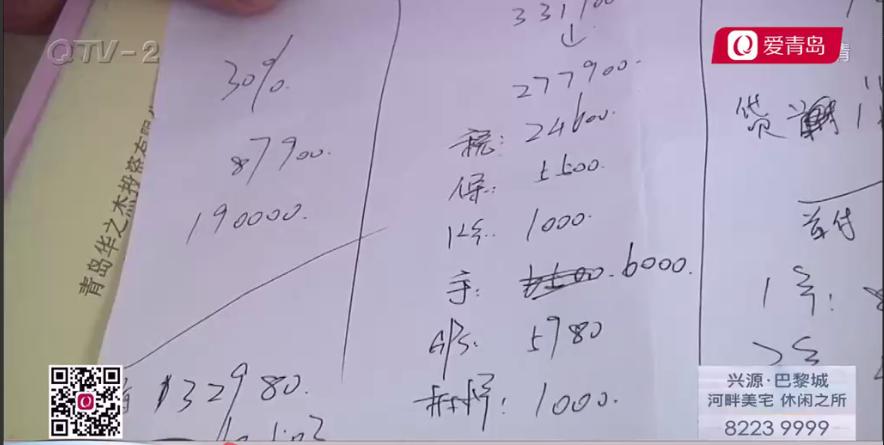 QTV-2
爱青岛
30%.
87900.
190000.
青岛华之杰投资有限公
331900
↓
277900.
税: 24600.
保: 5500.
1000.
手: 6000.
GPS: 5980
1000.
32980.
贷
首付
1年:
2年
兴源·巴黎城
河畔美宅 休闲之所
8223 9999